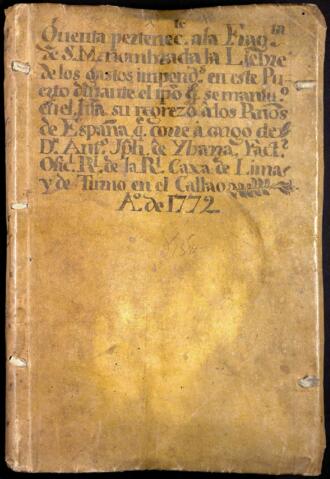 Quenta pertenec.te a la Frag.ta
de S. M. nombrada la Liebre
de los gastos impend.s en este Pu
erto durante el tpô q. se mantu.o
en el, hta. su regrezo â los Patrios
de España, q. corre â cargo de
D.n Ant.o Jph. de Ybarra, Fact.r
Ofic.l R.l de la R.l Caxa de Lima
y de Turno en el Callao
A.o de 1772